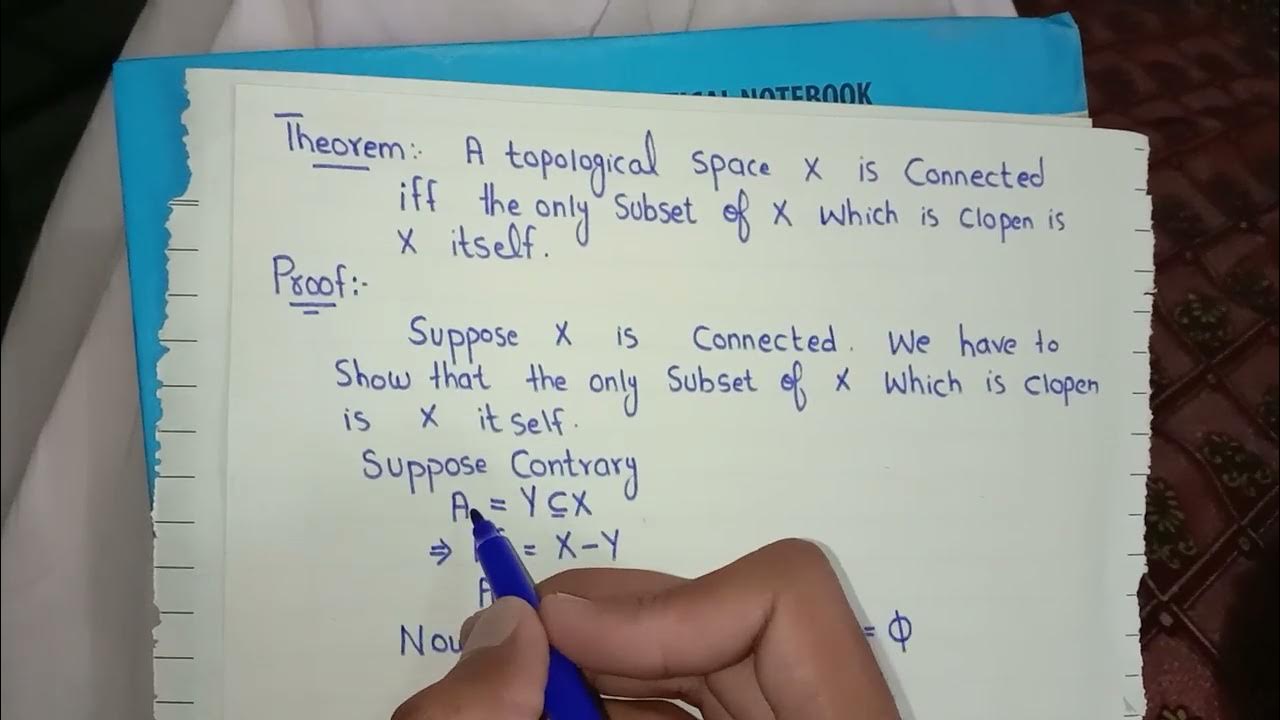 NOTEBOOK
Theorem:- A topological space X is Connected
iff the only Subset of X which is Clopen is
X itself.
Proof:-
Suppose X is Connected. We have to
Show that the only Subset of X which is Clopen
is X itself.
Suppose Contrary
A = Y ⊆ X
⇒ = X-Y
= ϕ